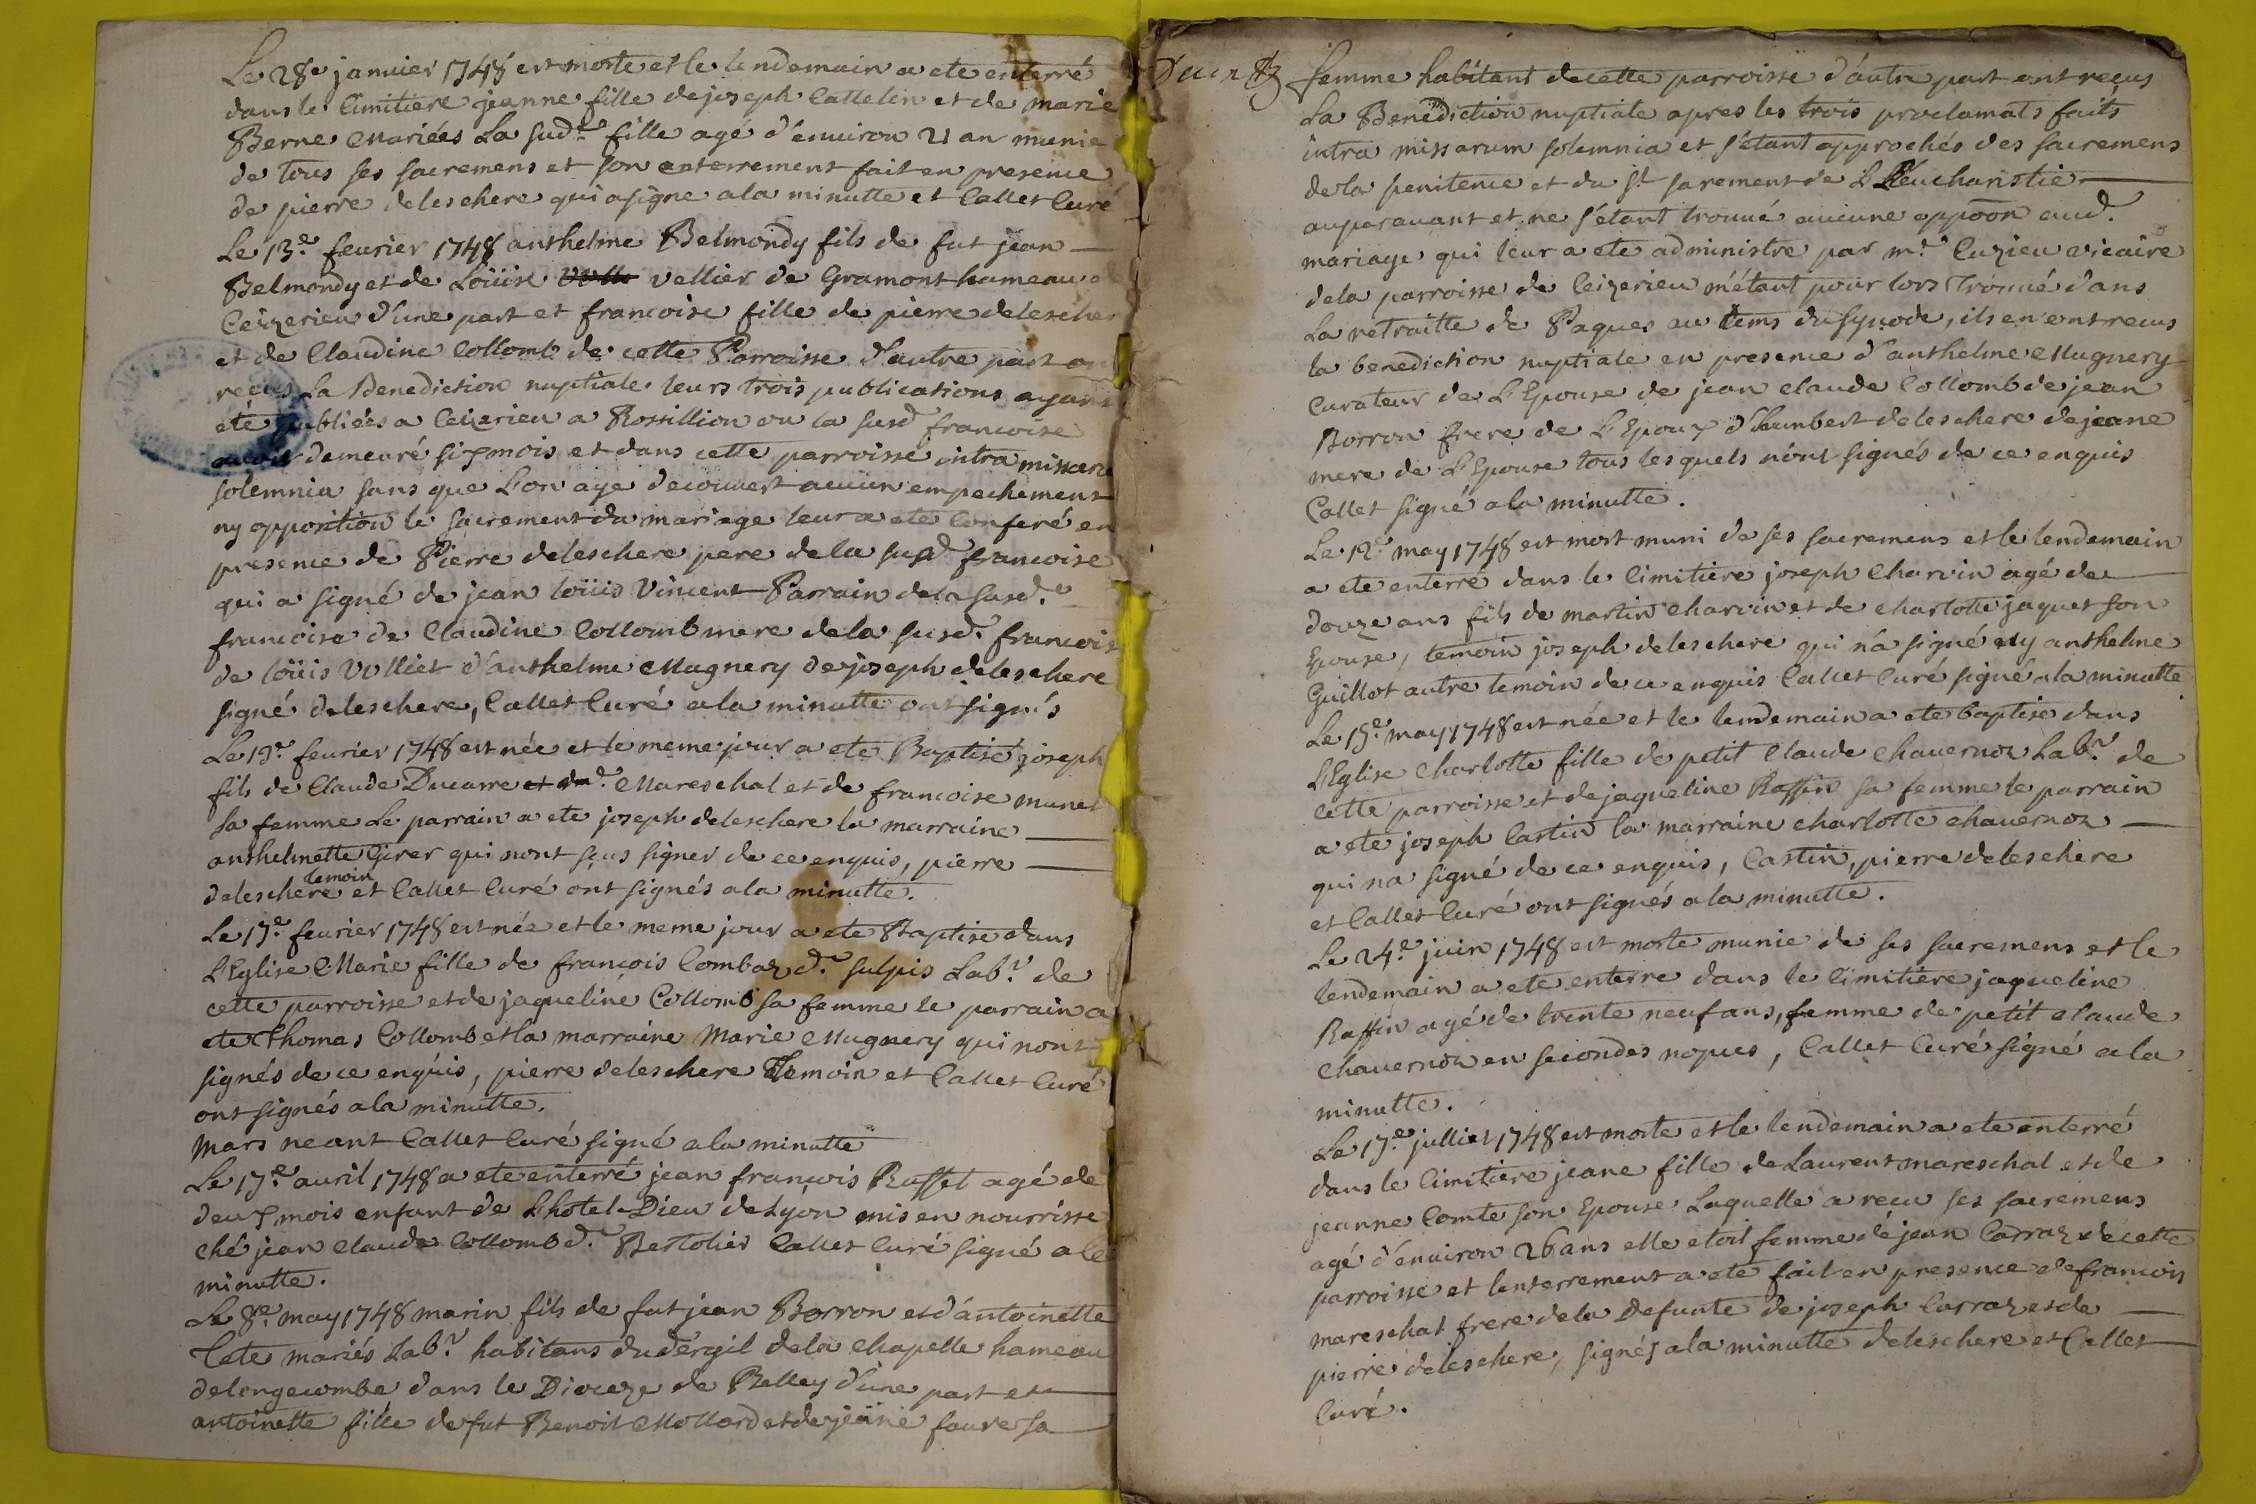 Le 28e janvier 1748 est morte et le lendemain a ete enterré
dans le Cimitiere jeanne fille de joseph Cattelin et de marie
Berne Mariées La sud.e fille agé d'environ 21 an munie
de tous ses sacremens et son enterrement fait en presence
de pierre deleschere qui a signe a la minutte et Callet Curé
Le 13.e fevrier 1748 anthelme Belmondy fils de fut jean
Belmondy et de Loüise vellier de Gramont hameau
Ceizerieu d'une part et francoise fille de pierre delescher
et de Claudine Collomb de cette Parroisse d'autre part
reçus La Benediction nuptiale leurs trois publications ayant
été publiées a Ceizerieu a Rossillion ou la susd francoise
demeuré six mois et dans cette parroisse intra missaru
solemnia sans que L'on aye decouvert aucun empechement
ny opposition le sacrement du mariage leur a ete Conferé en
presence de Pierre deleschere pere de la susd.e francoise
qui a signé de jean loüis Vincent Parrain de la susd.e
francoise de Claudine Collomb mere de la susd. francois
de loüis Vulliet d'anthelme Mugnery de joseph deleschere
signé deleschere, Callet Curé a la minutte ont signés
Le 13.e fevrier 1748 est née et le meme jour a ete Baptisé joseph
fils de Claude Ducarre Mareschal et de francoise munet
sa femme Le parrain a ete joseph deleschere la marraine
anthelmette Girer qui nont sçus signer de ce enquis, pierre
temoin
deleschere et Callet Curé ont signés a la minutte.
Le 17.e fevrier 1748 est née et le meme jour a ete Baptise dans
L'Eglise Marie fille de françois Combaz d.t sulpis Lab.r de
cette parroisse et de jaqueline Collomb sa femme le parrain a
ete Thomas Collomb et la marraine Marie Mugnery qui nont
signés de ce enquis, pierre deleschere Temoin et Callet Curé
ont signés a la minutte.
Mars neant Callet Curé signé a la minutte
Le 17.e avril 1748 a ete enterré jean françois Ruffet agé de
deux mois enfant de L'hotel-Dieu de Lyon mis en nourrisse
ché jean Claude Collomb d.t Bertolier Callet Curé signé a la
minutte.
Le 8.e may 1748 marin fils de fut jean Borron et d'antoinette
Tete mariés Lab.r habitans de la Chapelle hameau
de longecombe dans le Dioceze de Belley d'une part et
antoinette fille de fut Benoit Mollard et de jeane favre sa
femme habitant de cette parroisse d'autre part ont reçus
La Benediction nuptiale apres les trois proclamats faits
intra missarum solemnia et s'étant approchés des sacremens
de la penitence et du s.t sacrement de L'Eucharistie
auparavant et ne s'étant trouvé aucune oppoõn aud.
mariage qui leur a ete administre par m.r Cuzieu vicaire
de la parroisse de Ceizerieu m'étant pour lors trouvé dans
La retraitte de Paques au tems du synode, ils en ont recus
la benediction nuptiale en presence d'anthelme Mugnery
Curateur de L'Epouse de jean claude Collomb de jean
Borron frere de L'Epoux d'humbert deleschere de jeane
mere de L'Epouse tous lesquels n'ont signés de ce enquis
Callet signé a la minutte.
Le 12.e may 1748 est mort muni de ses sacremens et le lendemain
a ete enterré dans le Cimitiere joseph Charvin agé de
douze ans fils de martin Charvin et de charlotte jaquet son
Epouse, temoin joseph deleschere qui n'a signé ny anthelme
Guillot autre temoin de ce enquis Callet Curé signé a la minutte
Le 15.e may 1748 est née et le lendemain a ete baptise dans
L'Eglise Charlotte fille de petit Claude Chavernoz Lab.r de
cette parroisse et de jaqueline Raffin sa femme le parrain
a ete joseph Castin la marraine charlotte chavernoz
qui na signé de ce enquis, Castin, pierre deleschere
et Callet Curé ont signés a la minutte.
Le 24.e juin 1748 est morte munie de ses sacremens et le
lendemain a ete enterre dans le Cimitiere jaqueline
Raffin agé de trente neuf ans, femme de petit claude
Chavernoz en secondes nopces, Callet Curé signé a la
minutte.
Le 17.e julliet 1748 est morte et le lendemain a ete enterré
dans le Cimitiere jeane fille de Laurent mareschal et de
jeanne Comte son Epouse Laquelle a recu ses sacremens
agé d'environ 26 ans elle etoit femme de jean Carraz de cette
parroisse et lenterrement a ete fait en presence de francois
mareschal frere de la Defunte de joseph Carraz et de
pierre deleschere, signés a la minutte deleschere et Callet
Curé.